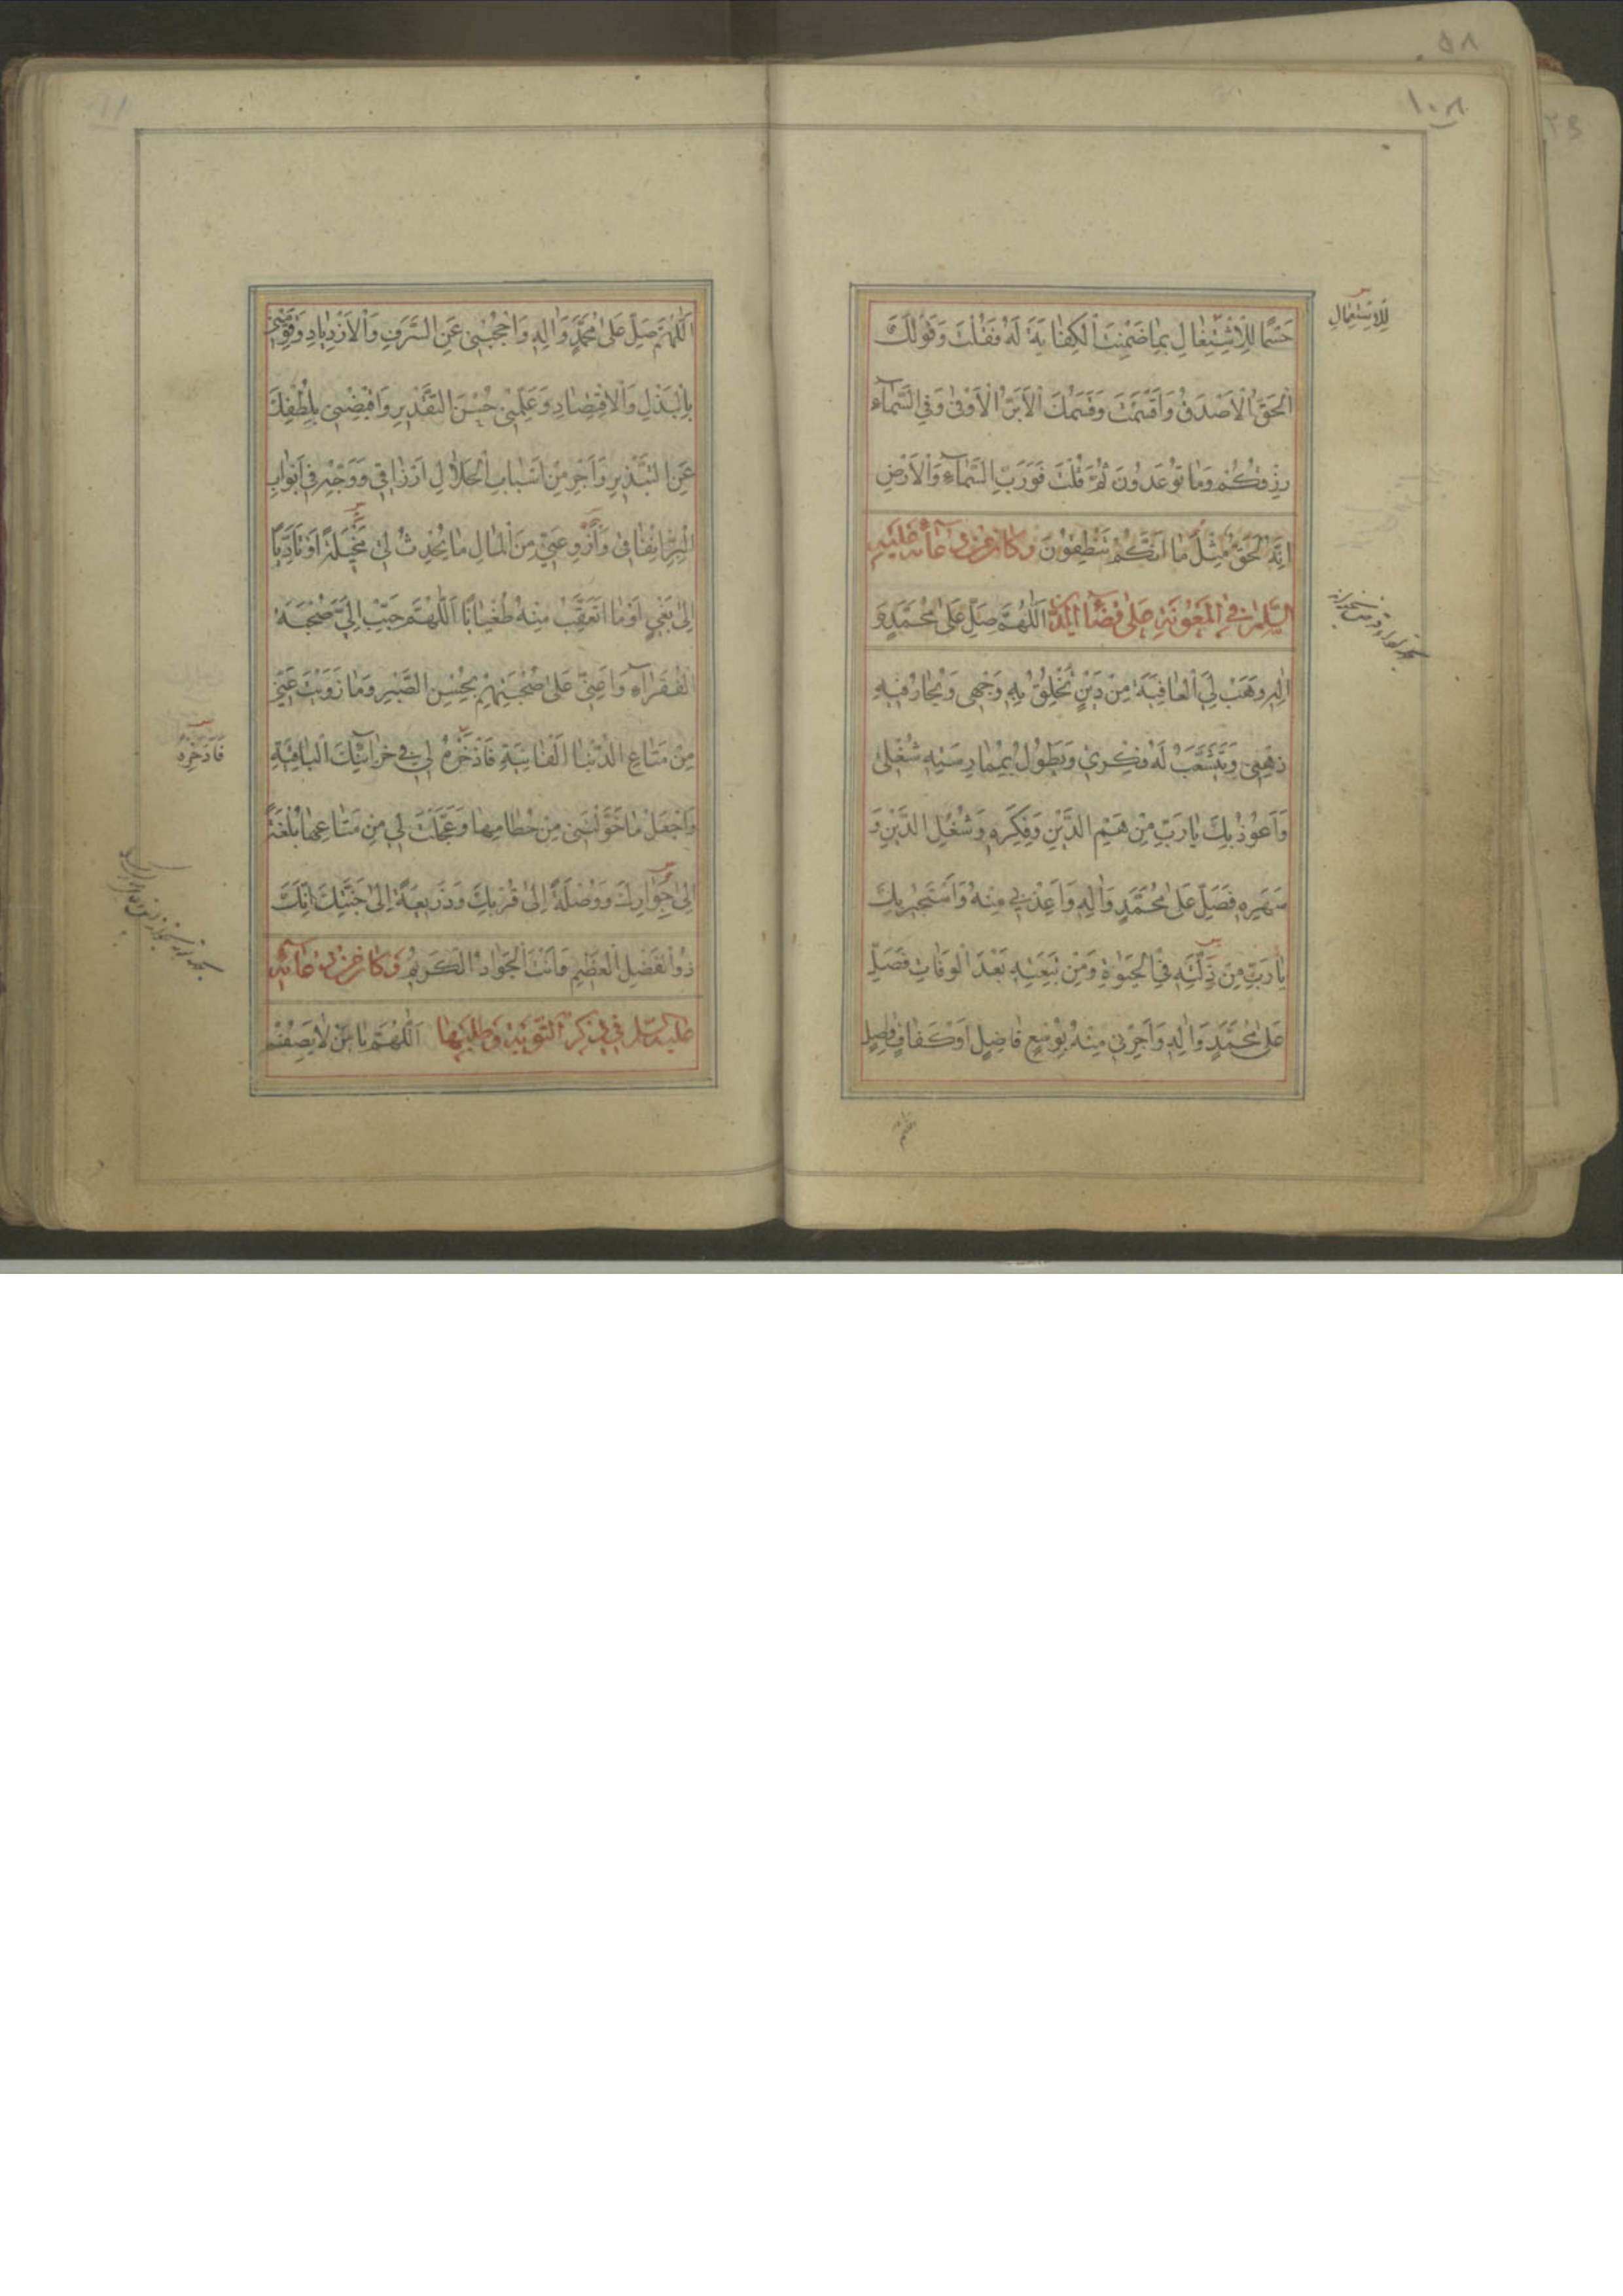 ١٠٨
٥٨
حَسْمًا لِلْاِشْتِغَالِ بِمَا ضَمِنْتَ الْكِفَايَةَ لَهُ فَقُلْتَ وَقَوْلُكَ
الْحَقُّ الْاَصْدَقُ وَاَقْسَمْتَ وَقَسَمُكَ الْاَبَرُّ الْاَوْفٰى وَفِي السَّمَآءِ
رِزْقُكُمْ وَمَا تُوعَدُونَ ثُمَّ قُلْتَ فَوَرَبِّ السَّمَآءِ وَالْاَرْضِ
اِنَّهُ لَحَقٌّ مِثْلَ مَا اَنَّكُمْ تَنْطِقُونَ وَكَانَ مِنْ دُعَآئِهِ عَلَيْهِ
السَّلَامُ فِي الْمَعُونَةِ عَلٰى قَضَآءِ الدَّيْنِ اَللّٰهُمَّ صَلِّ عَلٰى مُحَمَّدٍ وَ
اٰلِهِ وَهَبْ لِيَ الْعَافِيَةَ مِنْ دَيْنٍ تُخْلِقُ بِهِ وَجْهِي وَيَحَارُ فِيهِ
ذِهْنِي وَيَتَشَعَّبُ لَهُ فِكْرِي وَيَطُولُ بِمُمَارَسَتِهِ شُغْلِي
وَاَعُوذُ بِكَ يَا رَبِّ مِنْ هَمِّ الدَّيْنِ وَفِكْرِهِ وَشُغْلِ الدَّيْنِ وَ
سَهَرِهِ فَصَلِّ عَلٰى مُحَمَّدٍ وَاٰلِهِ وَاَعِذْنِي مِنْهُ وَاَسْتَجِيرُ بِكَ
يَا رَبِّ مِنْ ذِلَّتِهِ فِي الْحَيٰوةِ وَمِنْ تَبِعَتِهِ بَعْدَ الْوَفَاتِ فَصَلِّ
عَلٰى مُحَمَّدٍ وَاٰلِهِ وَاَجِرْنِي مِنْهُ بِوُسْعٍ فَاضِلٍ اَوْ كَفَافٍ وَاصِلٍ
اللهم
لِلْاِسْتِعْمَالِ
اَللّٰهُمَّ صَلِّ عَلٰى مُحَمَّدٍ وَاٰلِهِ وَاحْجُبْنِي عَنِ السَّرَفِ وَالْاِزْدِيَادِ وَقَوِّمْنِي
بِالْبَذْلِ وَالْاِقْتِصَادِ وَعَلِّمْنِي حُسْنَ التَّقْدِيرِ وَاقْبِضْنِي بِلُطْفِكَ
عَنِ التَّبْذِيرِ وَاَجْرِ مِنْ اَسْبَابِ الْحَلَالِ اَرْزَاقِي وَوَجِّهْ فِي اَبْوَابِ
الْبِرِّ اِنْفَاقِي وَازْوِ عَنِّي مِنَ الْمَالِ مَا يُحْدِثُ لِي مَخِيلَةً اَوْ تَاَدِّيًا
اِلٰى بَغْيٍ اَوْ مَا اَتَعَقَّبُ مِنْهُ طُغْيَانًا اَللّٰهُمَّ حَبِّبْ اِلَيَّ صُحْبَةَ
الْفُقَرَآءِ وَاَعِنِّي عَلٰى صُحْبَتِهِمْ بِحُسْنِ الصَّبْرِ وَمَا زَوَيْتَ عَنِّي
مِنْ مَتَاعِ الدُّنْيَا الْفَانِيَةِ فَاذْخَرْهُ لِي فِي خَزَآئِنِكَ الْبَاقِيَةِ
وَاجْعَلْ مَا خَوَّلْتَنِي مِنْ حُطَامِهَا وَعَجَّلْتَ لِي مِنْ مَتَاعِهَا بُلْغَةً
اِلٰى جِوَارِكَ وَوُصْلَةً اِلٰى قُرْبِكَ وَذَرِيعَةً اِلٰى جَنَّتِكَ اِنَّكَ
ذُو الْفَضْلِ الْعَظِيمِ وَاَنْتَ الْجَوَادُ الْكَرِيمُ وَكَانَ مِنْ دُعَآئِهِ
عَلَيْهِ السَّلَامُ فِي ذِكْرِ التَّوْبَةِ وَطَلَبِهَا اَللّٰهُمَّ يَا مَنْ لَا يَصِفُهُ
فَادَّخِرْهُ